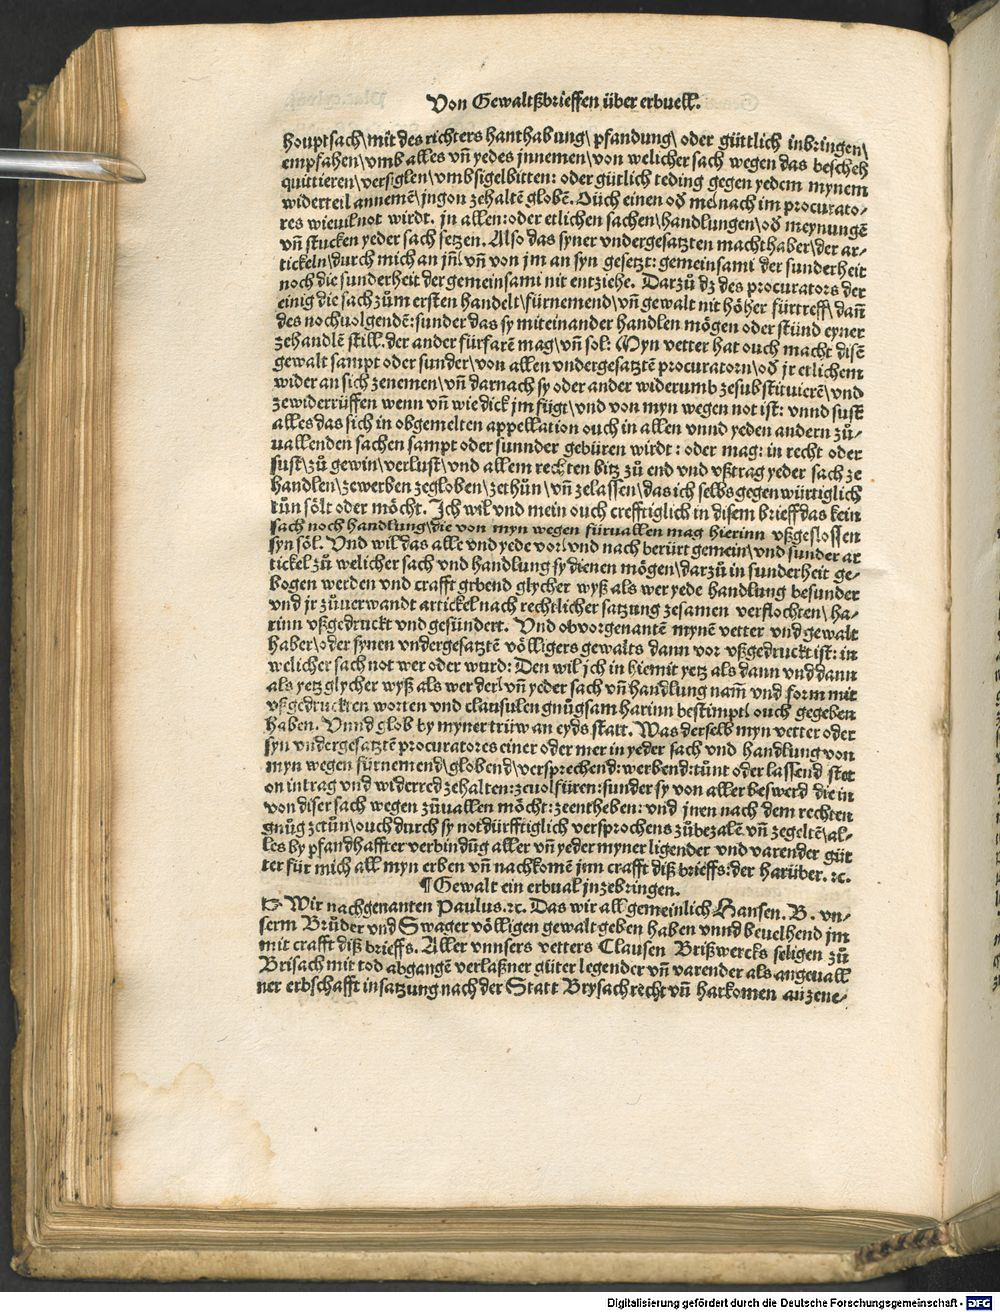 Von Gewaltßbrieffen über erbuell.
houptsach\mit des richters hanthabung\ pfandung\ oder güttlich inbringen\
empfahen\vmb alles vñ yedes jnnemen\von welicher sach wegen das bescheh
quittieren\versiglen\vmbsigelbitten: oder gütlich teding gegen yedem mynem
widerteil annemẽ\jngon zehaltẽ globẽ. Ouch einen oð me\nach im procurato⸗
res wieuil not wirdt. jn allen:oder etlichen sachen\handlungen\oð meynungẽ
vñ stucken yeder sach setzen. Also das syner vndergesatzten machthaber\der ar⸗
tickeln\durch mich an jñ\ vñ von jm an syn gesetzt: gemeinsami der sunderheit
noch die sunderheit der gemeinsami nit entziehe. Darzů dz des procurators der
einig die sach zům ersten handelt\fürnemend\vñ gewalt nit höher fürtreff\dañ
des nochuolgendẽ:sunder das sy miteinander handlen mögen oder stünd eyner
zehandlẽ still. der ander fürfarẽ mag\vñ sol: Myn vetter hat ouch macht disẽ
gewalt sampt oder sunder\von allen vndergesatztẽ procuratorn\oð jr etlichem
wider an sich zenemen\vñ darnach sy oder ander widerumb zesubstituierẽ\vnd
zewiderrüffen wenn vñ wie dick jm fügt\vnd von myn wegen not ist: vnnd sust
alles das sich in obgemelten appellation ouch in allen vnnd yeden andern zů⸗
uallenden sachen sampt oder sunnder gebüren wirdt: oder mag: in recht oder
sust\zů gewin\verlust\vnd allem rechten bitz zů end vnd vßtrag yeder sach ze
handlen\zewerben zegloben\zethün\vñ zelassen\das ich selbs gegenwürtiglich
tůn sölt oder möcht. Ich wil vnd mein ouch crefftiglich in disem brieff das kein
sach noch handlung\die von myn wegen füruallen mag hierinn vßgeslossen
syn söl. Vnd wil das alle vnd yede vor\ vnd nach berürt gemein\vnd sunder ar
tickel zů welicher sach vnd handlung sy dienen mögen\darzů in sunderheit ge⸗
bogen werden vnd crafft gebend glycher wyß als wer yede handlung besunder
vnd jr zůuerwandt artickel nach rechtlicher satzung zesamen verflochten\ ha⸗
rinn vßgedruckt vnd gesündert. Vnd ob vorgenantẽ mynẽ vetter vnd gewalt
haber\oder synen vndergesatztẽ völligers gewalts dann vor vßgedruckt ist: in
welicher sach not wer oder wurd: Den wil jch in hiemit yetz als dann vnd dann
als yetz glycher wyß als wer der\ vñ yeder sach vñ handlung nam̃ vnd form mit
vßgedruckten worten vnd clausulen gnůgsam harinn bestimpt\ ouch gegeben
haben. Vnnd glob by myner trüw an eyds statt. Was derselb myn vetter oder
syn vndergesatztẽ procuratores einer oder mer in yeder sach vnd handlung von
myn wegen fürnemend\globend\versprechend:werbend:tůnt oder lassend stet
on intrag vnd widerred zehalten:zeuolfüren:sunder sy von aller beswerd die in
von diser sach wegen zůuallen möcht:zeentheben: vnd jnen nach dem rechten
gnůg zetůn\ouch durch sy notdürfftiglich versprochens zůbezalẽ vñ zegeltẽ\al⸗
les by pfandhaffter verbindũg aller vñ yeder myner ligender vnd varender güt
ter für mich all myn erben vñ nachkomẽ jnn crafft diß brieffs:der harüber. ꝛc.
¶Gewalt ein erbual jnzebringen.
☞ Wir nachgenanten Paulus.ꝛc. Das wir all gemeinlich Hansen. B. vn⸗
serm Brůder vnd Swager völligen gewalt geben haben vnnd beuelhend jm
mit crafft diß brieffs. Aller vnnsers vetters Clausen Brißwercks seligen zů
Brisach mit tod abgangẽ verlaßner güter legender vñ varender als angeuall
ner erbschafft in satzung nach der Statt Brysach recht vñ harkomen anzene⸗
Digitalisierung gefördert durch die Deutsche Forschungsgemeinschaft - DFG